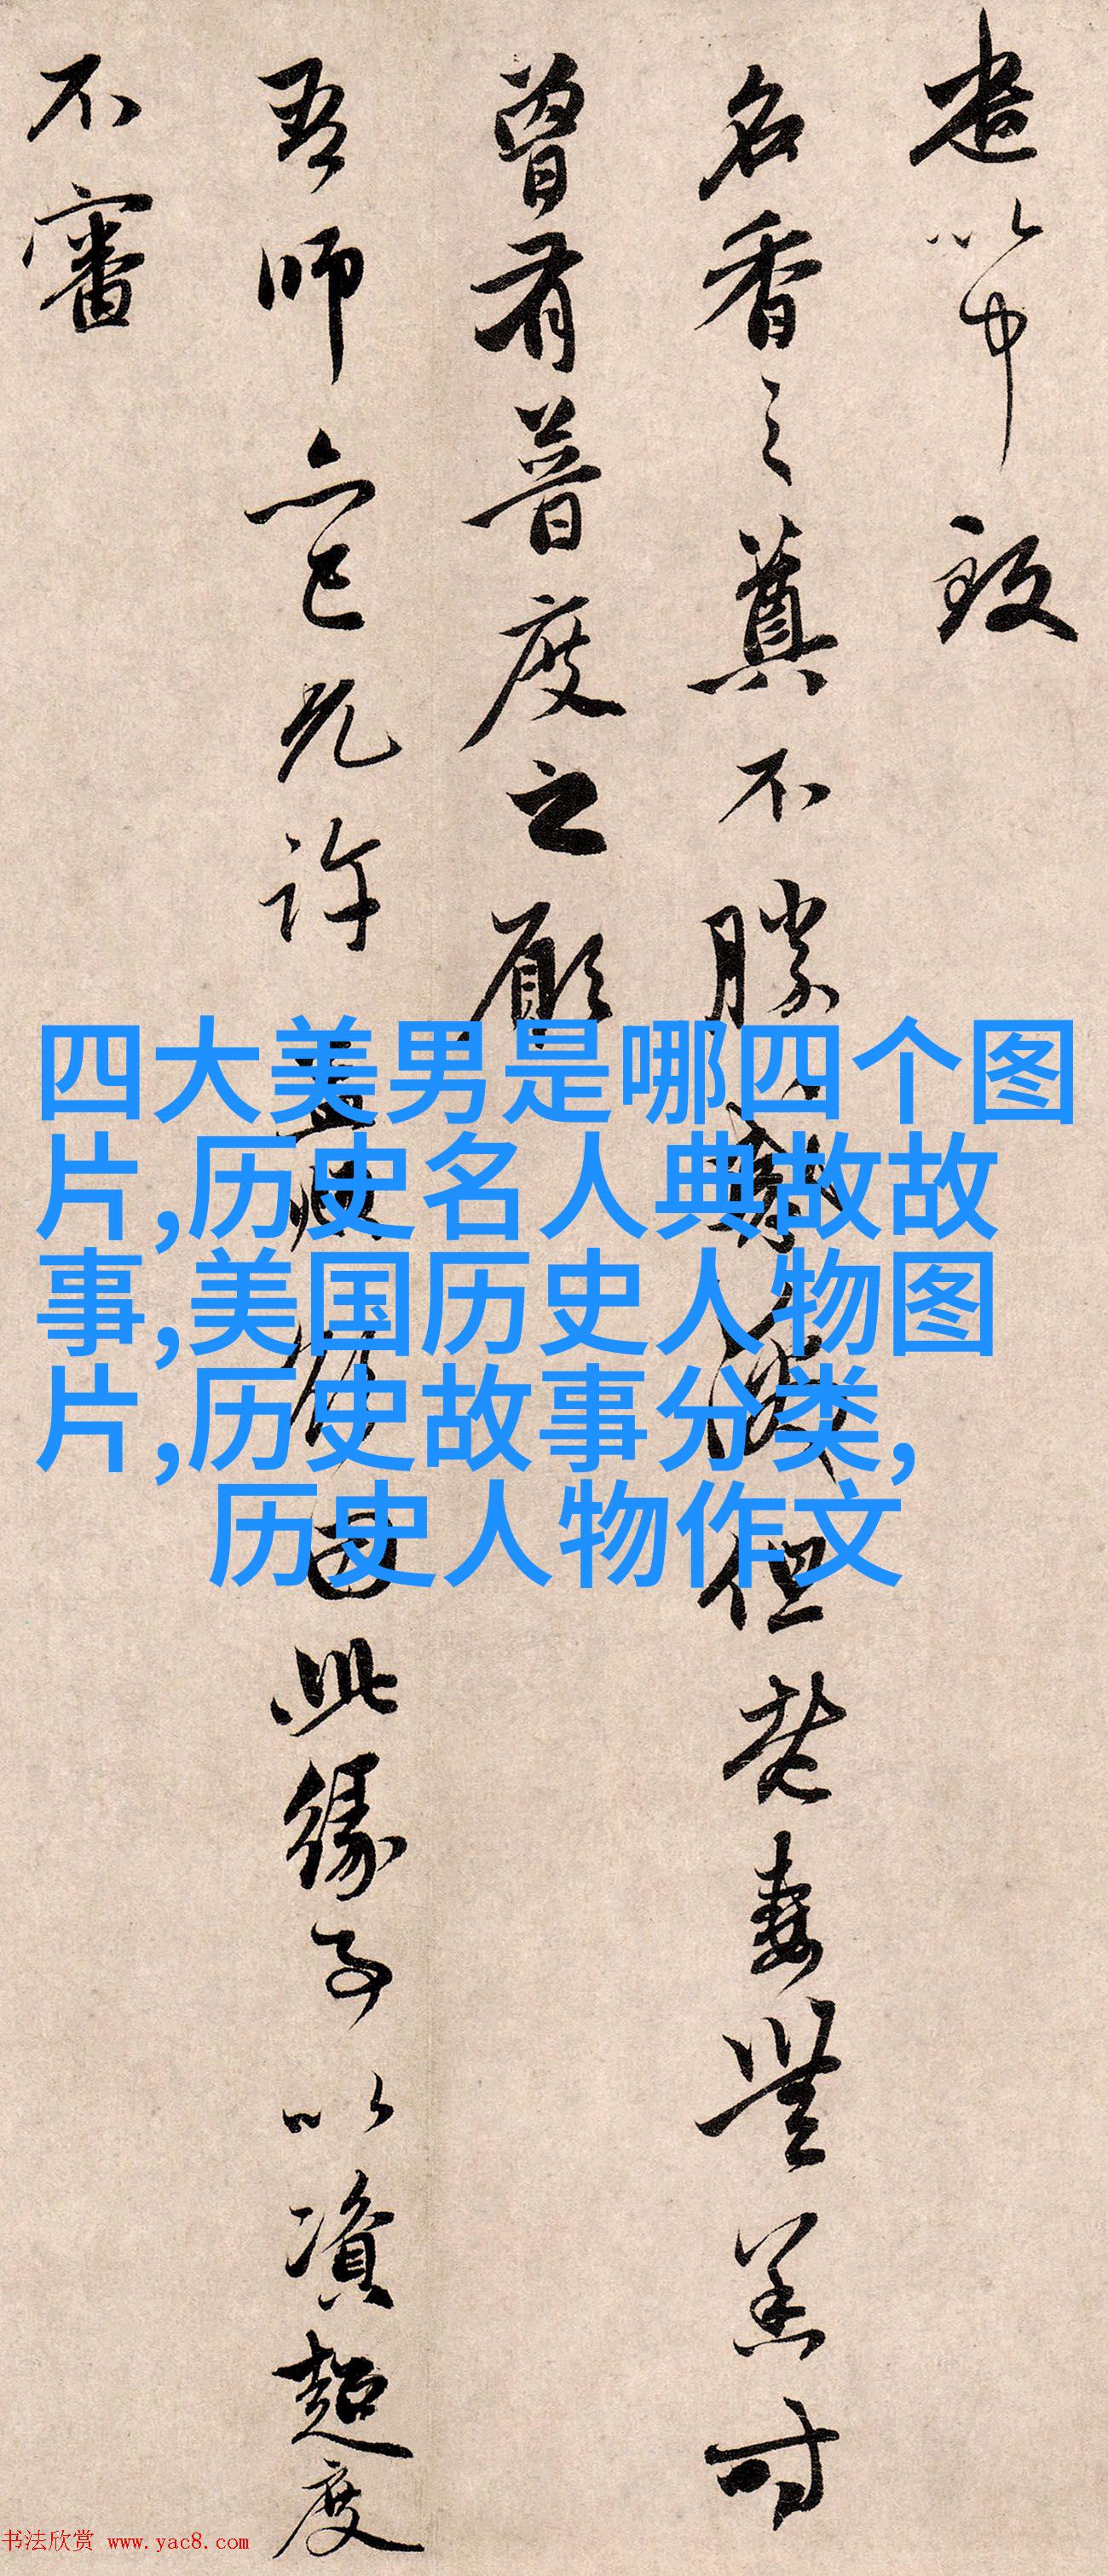 遣以中致
名香之奠不勝
但焚妻與羔時
曾有普度之願
吾師亦已允許
因此緣子以資超度
不審
四大美男是哪四个图
片,历史名人典故故
事,美国历史人物图
片,历史故事分类,
历史人物作文
书法欣赏 www.yac8.com